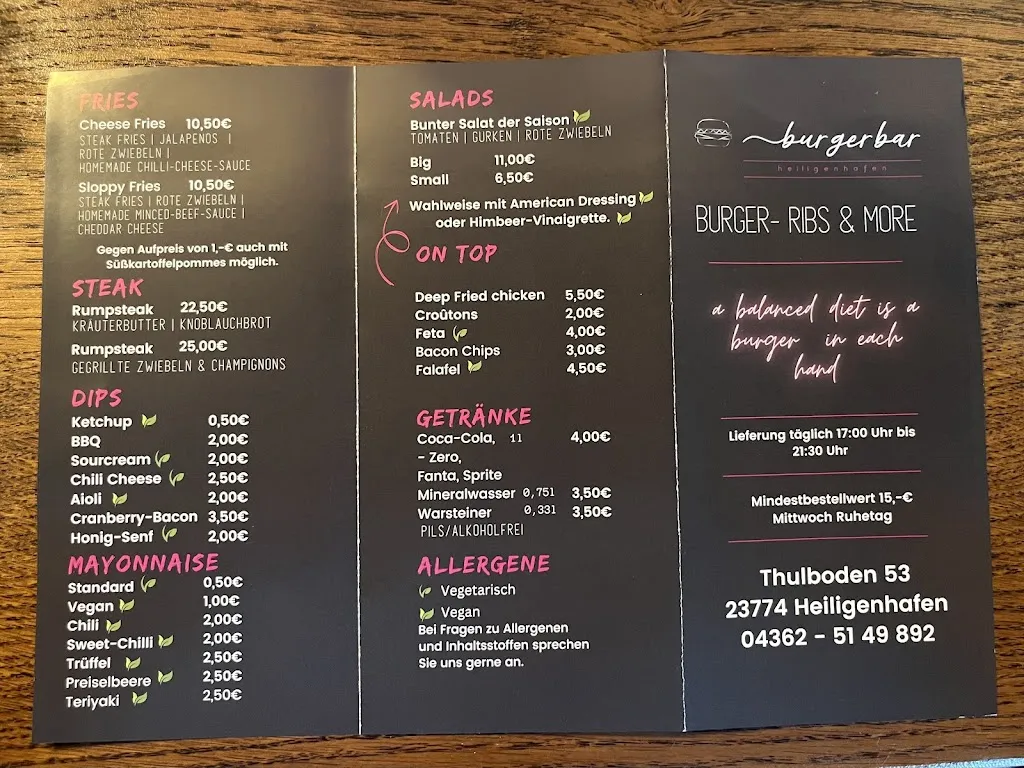 FRIES
Cheese Fries 10,50€
STEAK FRIES | JALAPENOS |
ROTE ZWIEBELN |
HOMEMADE CHILLI-CHEESE-SAUCE
Sloppy Fries 10,50€
STEAK FRIES | ROTE ZWIEBELN |
HOMEMADE MINCED-BEEF-SAUCE |
CHEDDAR CHEESE
Gegen Aufpreis von 1,-€ auch mit
Süßkartoffelpommes möglich.
STEAK
Rumpsteak 22,50€
KRÄUTERBUTTER | KNOBLAUCHBROT
Rumpsteak 25,00€
GEGRILLTE ZWIEBELN & CHAMPIGNONS
DIPS
Ketchup 0,50€
BBQ 2,00€
Sourcream 2,00€
Chili Cheese 2,50€
Aioli 2,00€
Cranberry-Bacon 3,50€
Honig-Senf 2,00€
MAYONNAISE
Standard 0,50€
Vegan 1,00€
Chili 2,00€
Sweet-Chilli 2,00€
Trüffel 2,50€
Preiselbeere 2,50€
Teriyaki 2,50€
SALADS
Bunter Salat der Saison
TOMATEN | GURKEN | ROTE ZWIEBELN
Big 11,00€
Small 6,50€
Wahlweise mit American Dressing
oder Himbeer-Vinaigrette.
ON TOP
Deep Fried chicken 5,50€
Croûtons 2,00€
Feta 4,00€
Bacon Chips 3,00€
Falafel 4,50€
GETRÄNKE
Coca-Cola, 1l 4,00€
- Zero,
Fanta, Sprite
Mineralwasser 0,75l 3,50€
Warsteiner 0,33l 3,50€
PILS/ALKOHOLFREI
ALLERGENE
Vegetarisch
Vegan
Bei Fragen zu Allergenen
und Inhaltsstoffen sprechen
Sie uns gerne an.
burgerbar
heiligenhafen
BURGER- RIBS & MORE
a balanced diet is a
burger in each
hand
Lieferung täglich 17:00 Uhr bis
21:30 Uhr
Mindestbestellwert 15,-€
Mittwoch Ruhetag
Thulboden 53
23774 Heiligenhafen
04362 - 51 49 892